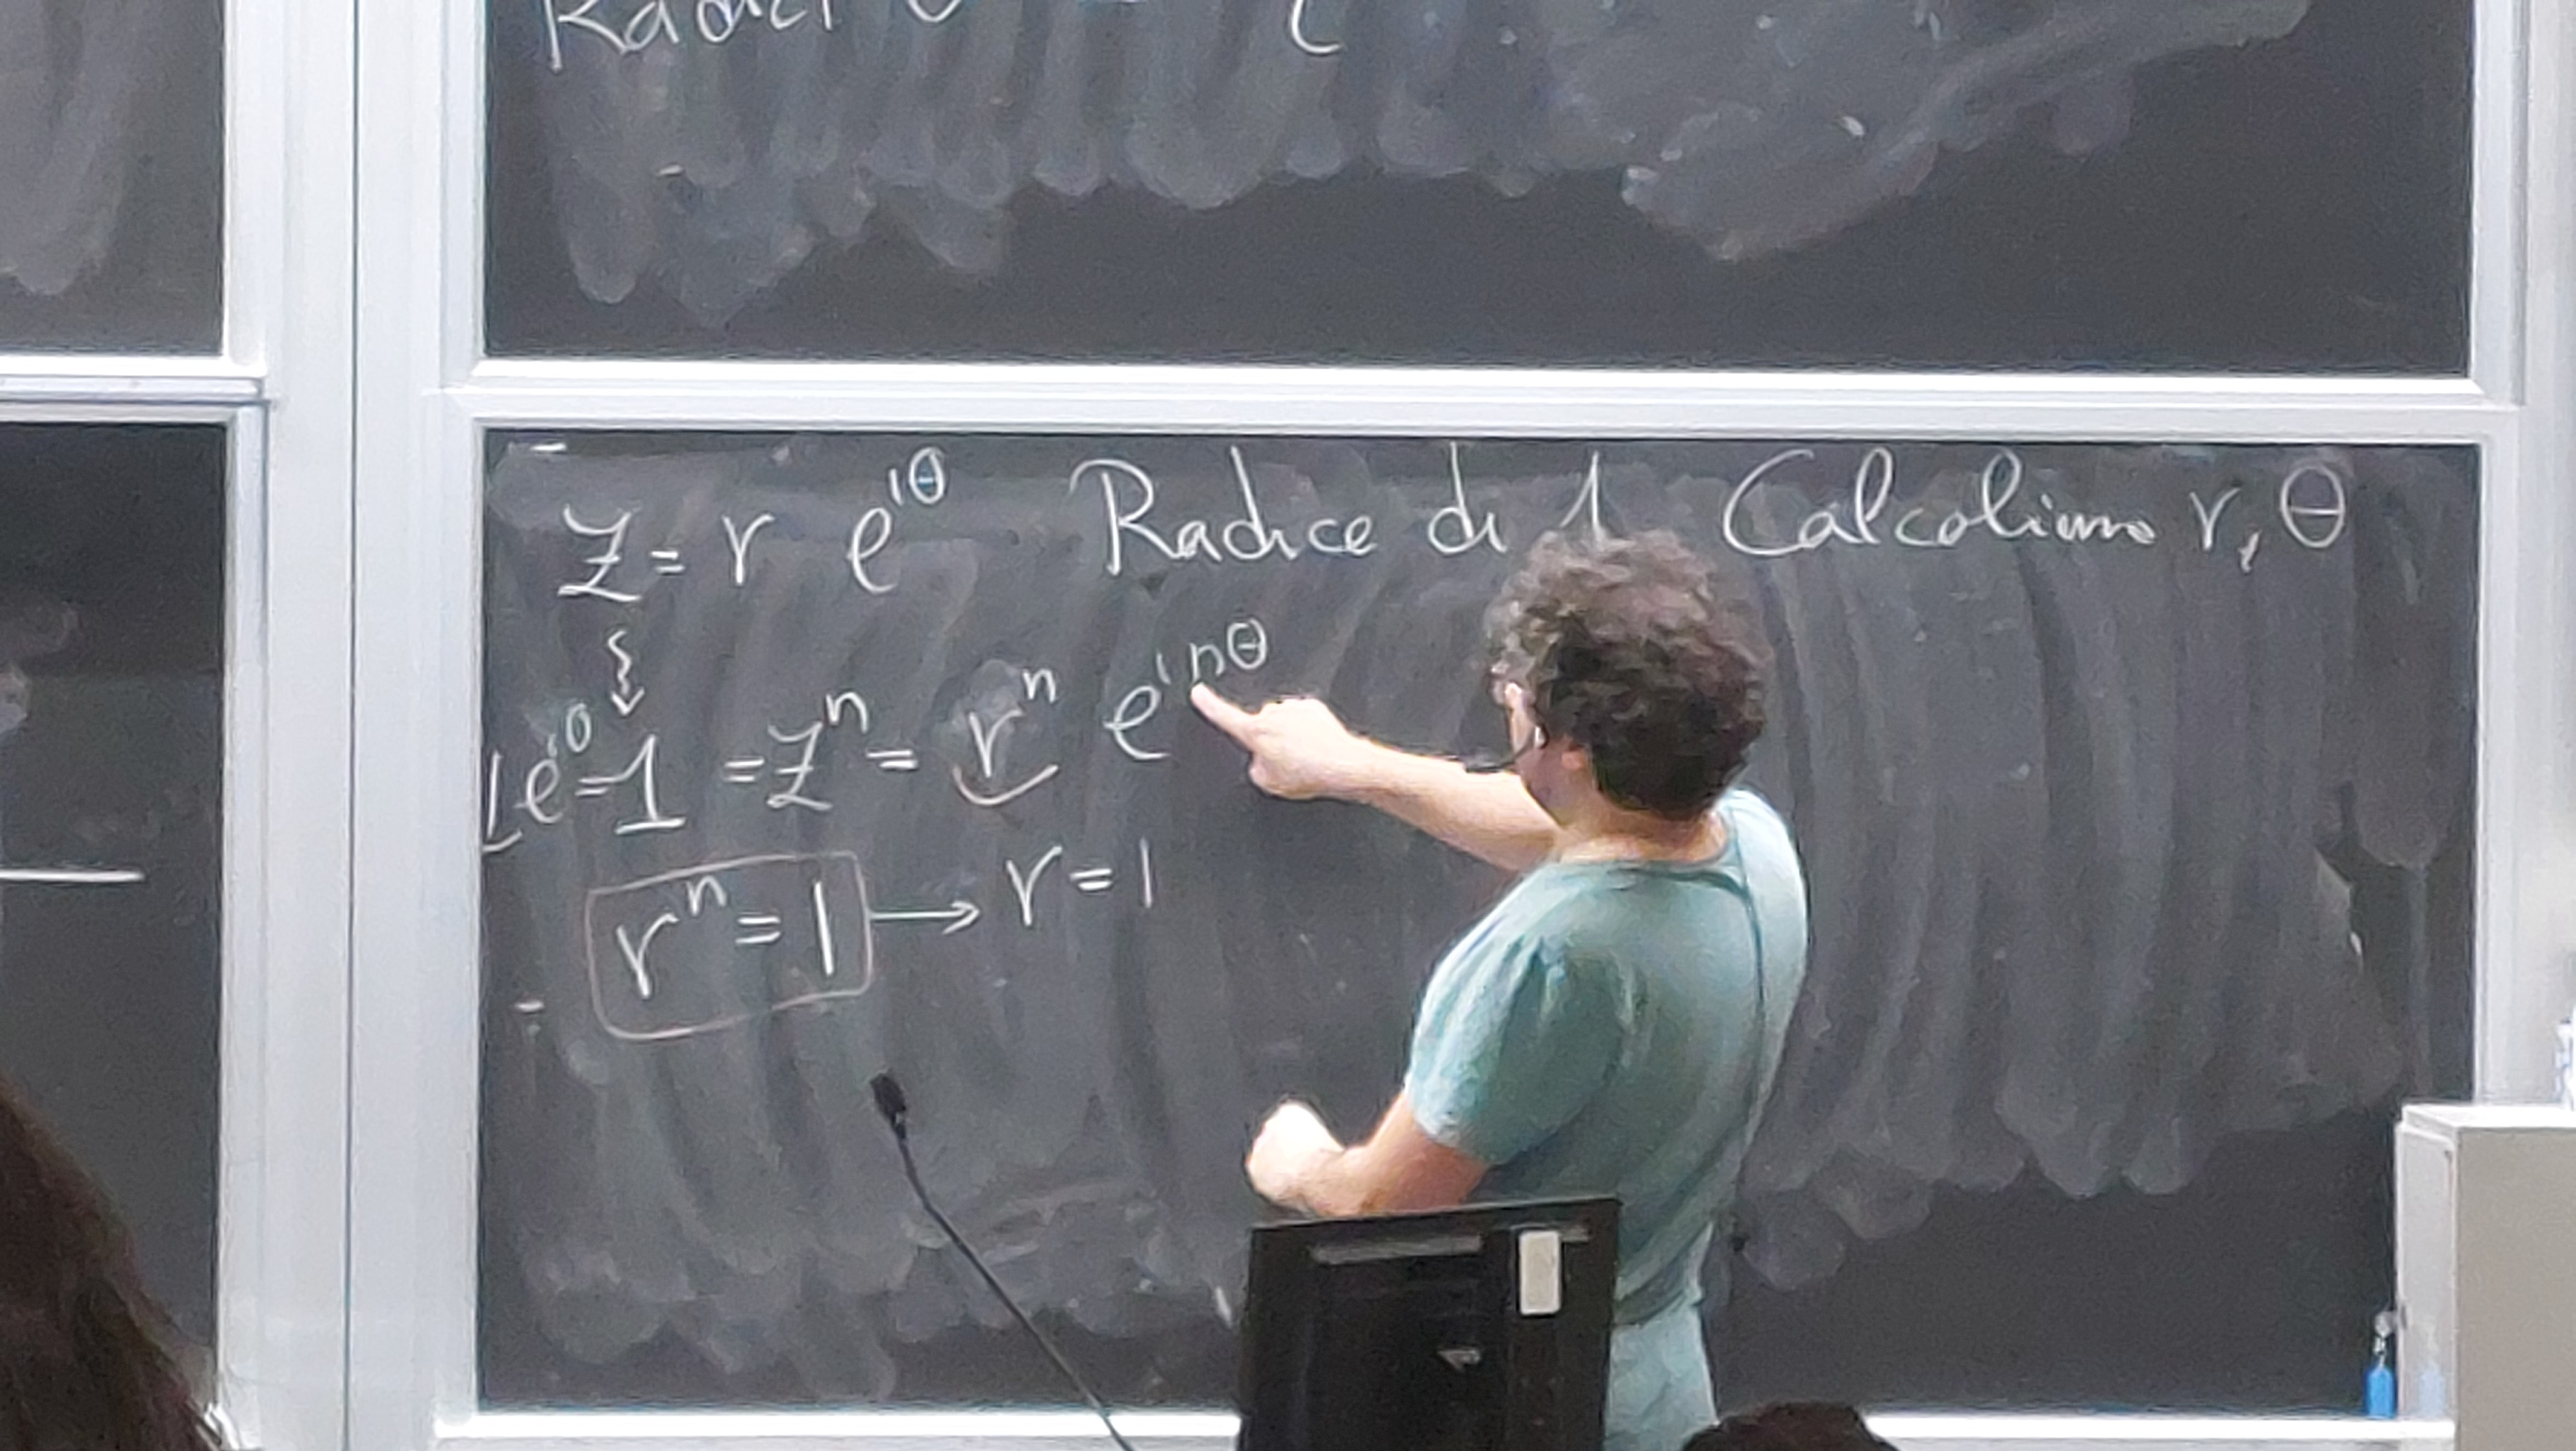 Radici
z = r e^{iθ} Radice di 1 Calcoliamo r, θ
1e^{i0} = 1 = z^n = r^n e^{inθ}
r^n = 1 → r = 1